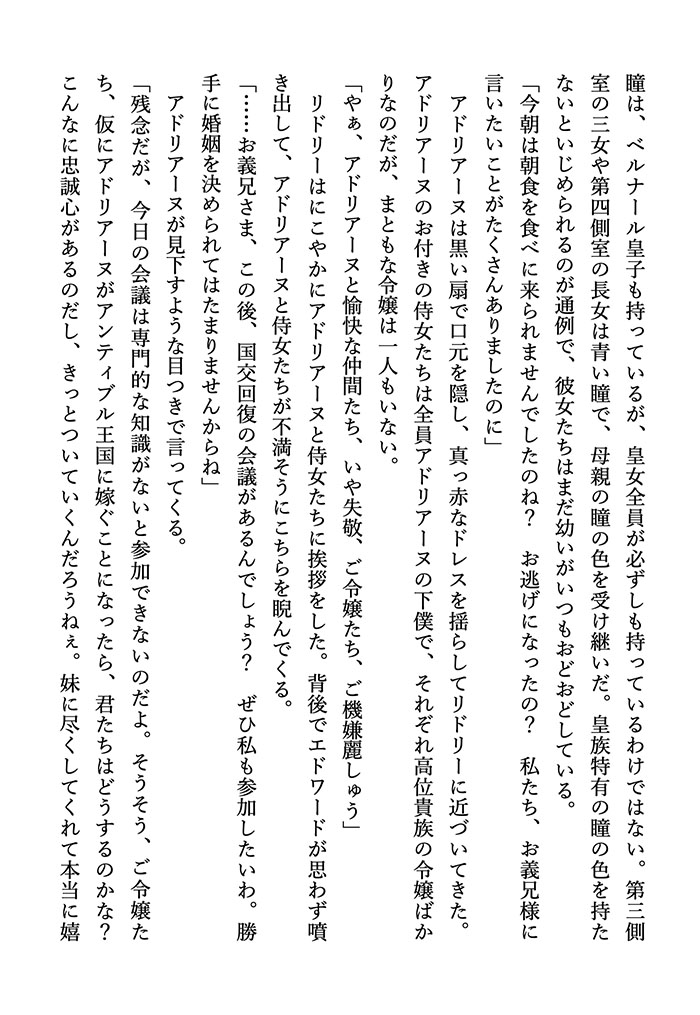 瞳は、ベルナール皇子も持っているが、皇女全員が必ずしも持っているわけではない。第三側
室の三女や第四側室の長女は青い瞳で、母親の瞳の色を受け継いだ。皇族特有の瞳の色を持た
ないといじめられるのが通例で、彼女たちはまだ幼いがいつもおどおどしている。
「今朝は朝食を食べに来られませんでしたのね?　お逃げになったの?　私たち、お義兄様に
言いたいことがたくさんありましたのに」
　アドリアーヌは黒い扇で口元を隠し、真っ赤なドレスを揺らしてリドリーに近づいてきた。
アドリアーヌのお付きの侍女たちは全員アドリアーヌの下僕で、それぞれ高位貴族の令嬢ばか
りなのだが、まともな令嬢は一人もいない。
「やぁ、アドリアーヌと愉快な仲間たち、いや失敬、ご令嬢たち、ご機嫌麗しゅう」
　リドリーはにこやかにアドリアーヌと侍女たちに挨拶をした。背後でエドワードが思わず噴
き出して、アドリアーヌと侍女たちが不満そうにこちらを睨んでくる。
「……お義兄さま、この後、国交回復の会議があるんでしょう?　ぜひ私も参加したいわ。勝
手に婚姻を決められてはたまりませんからね」
　アドリアーヌが見下すような目つきで言ってくる。
「残念だが、今日の会議は専門的な知識がないと参加できないのだよ。そうそう、ご令嬢た
ち、仮にアドリアーヌがアンティブル王国に嫁ぐことになったら、君たちはどうするのかな?
こんなに忠誠心があるのだし、きっとついていくんだろうねぇ。妹に尽くしてくれて本当に嬉